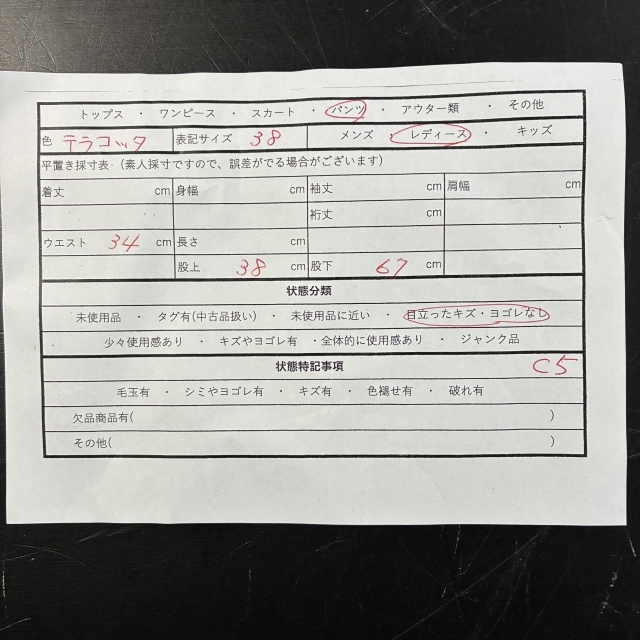 トップス ・ ワンピース ・ スカート ・ パンツ ・ アウター類 ・ その他
色 テラコッタ 表記サイズ 38 メンズ ・ レディース ・ キッズ
平置き採寸表 (素人採寸ですので、誤差がでる場合がございます)
着丈 cm 身幅 cm 袖丈 cm 肩幅 cm
裄丈 cm
ウエスト 34 cm 長さ cm
股上 38 cm 股下 67 cm
状態分類
未使用品 ・ タグ有(中古品扱い) ・ 未使用品に近い ・ 目立ったキズ・ヨゴレなし
少々使用感あり ・ キズやヨゴレ有 ・全体的に使用感あり ・ ジャンク品
状態特記事項 C5
毛玉有 ・ シミやヨゴレ有 ・ キズ有 ・ 色褪せ有 ・ 破れ有
欠品商品有( )
その他( )